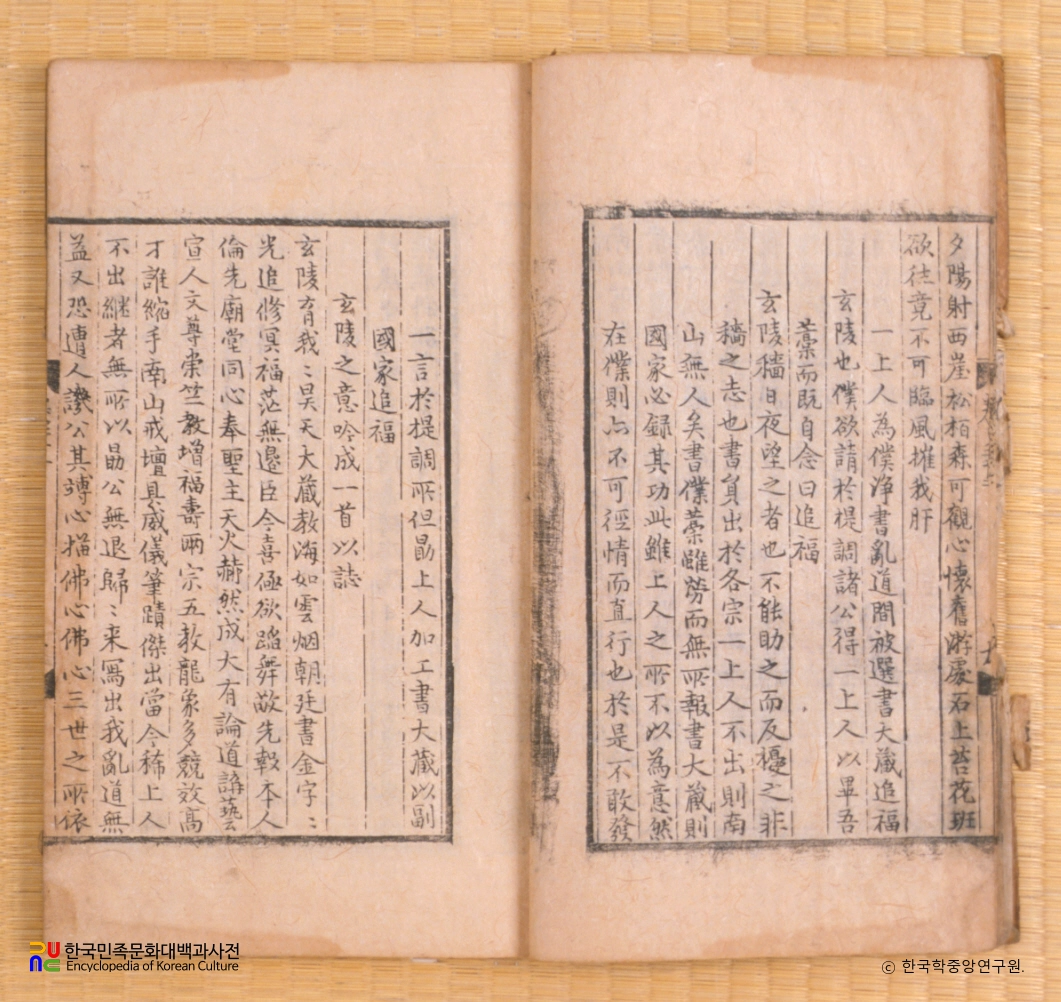 夕陽射西崖松栢森可觀心懷舊游處石上苔花班
欲徃竟不可臨風摧我肝
一上人為僕淨書亂道間被選書大藏追福
玄陵也僕欲請於提調諸公得一上人以畢吾
藁而旣自念曰追福
玄陵穡日夜望之者也不能助之而反擾之非
穡之志也書員出於各宗一上人不出則南
山無人矣書僕藁雖勞而無所報書大藏則
國家必録其功此雖上人之所不以為意然
在僕則亦不可徑情而直行也於是不敢發
一言於提調所但勖上人加工書大藏以副
國家追福
玄陵之意吟成一首以誌
玄陵育我〻昊天大藏教海如雲烟朝廷書金字〻
光追修冥福茫無邊臣今喜極欲蹈舞敢先穀本人
倫先廟堂同心奉聖主天火赫然成大有論道講藝
宣人文尊崇竺教增福壽兩宗五教龍象多競效高
才誰縮手南山戒壇具威儀筆蹟傑出當今稀上人
不出継者無所以勖公無退歸〻来寫出我亂道無
益又恐遭人譏公其溥心描佛心佛心三世之所依
한국민족문화대백과사전
Encyclopedia of Korean Culture
ⓒ 한국학중앙연구원.